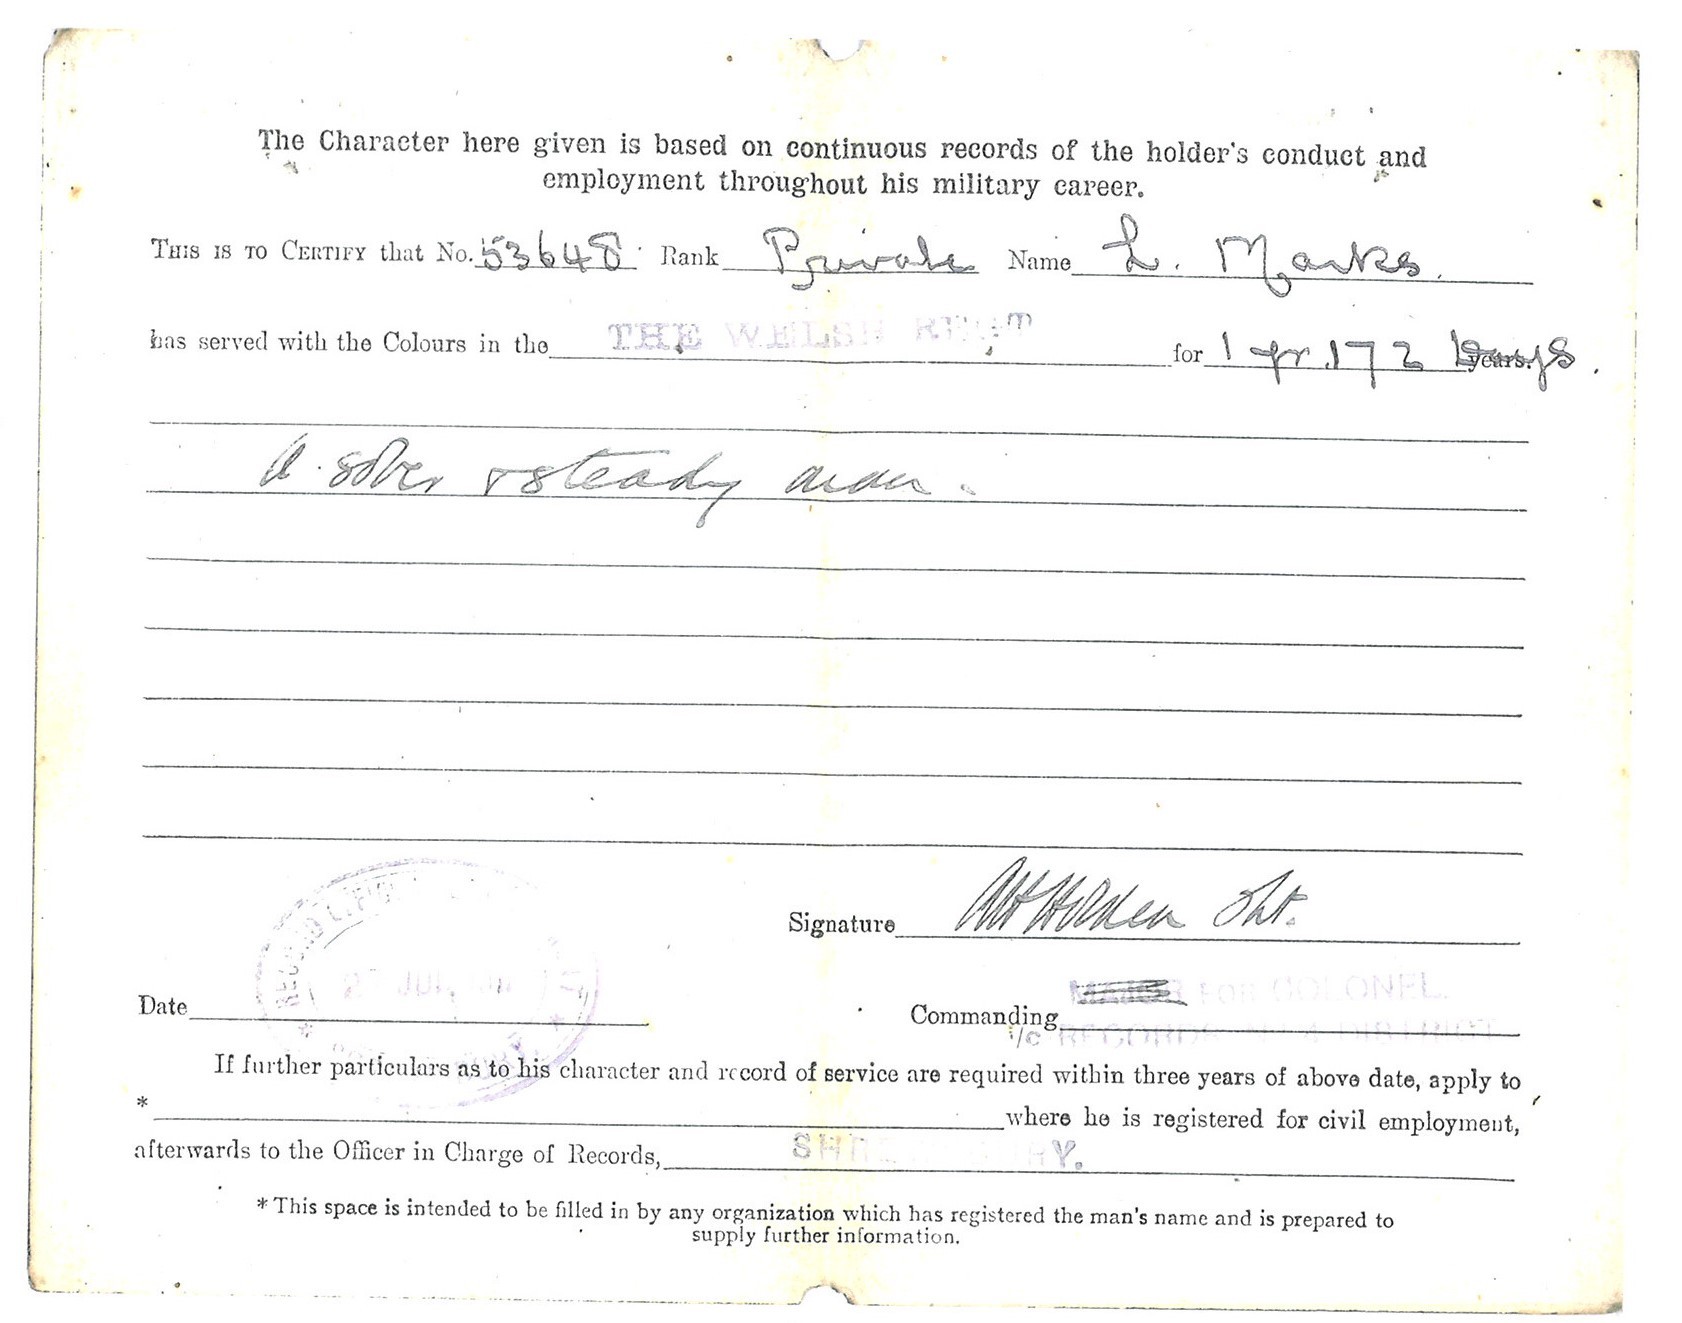 The Character here given is based on continuous records of the holder's conduct and
employment throughout his military career.
THIS IS TO CERTIFY that No. 53648 Rank Private Name L. Marks.
has served with the Colours in the THE WELSH REGT for 1 yr. 172 Days.
A sober & steady man.
Signature Holden Lt.
Date JUL
FOR COLONEL.
Commanding
i/c RECORDS DISTRICT
If further particulars as to his character and record of service are required within three years of above date, apply to
* where he is registered for civil employment,
afterwards to the Officer in Charge of Records, SHREWSBURY.
* This space is intended to be filled in by any organization which has registered the man's name and is prepared to
supply further information.